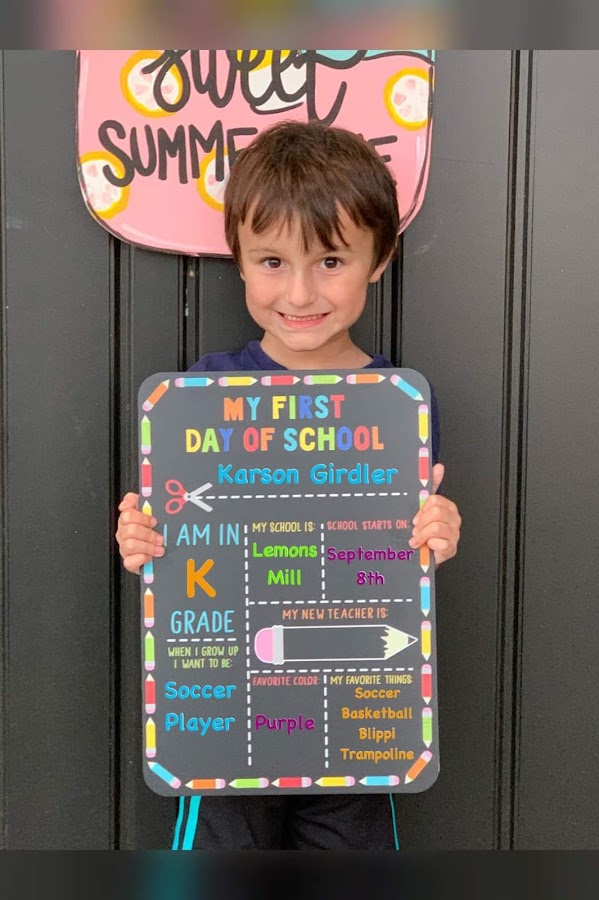 Sweet
SUMMERTIME
MY FIRST
DAY OF SCHOOL
Karson Girdler
I AM IN
K
GRADE
MY SCHOOL IS:
Lemons
Mill
SCHOOL STARTS ON:
September
8th
MY NEW TEACHER IS:
WHEN I GROW UP
I WANT TO BE:
Soccer
Player
FAVORITE COLOR:
Purple
MY FAVORITE THINGS:
Soccer
Basketball
Blippi
Trampoline